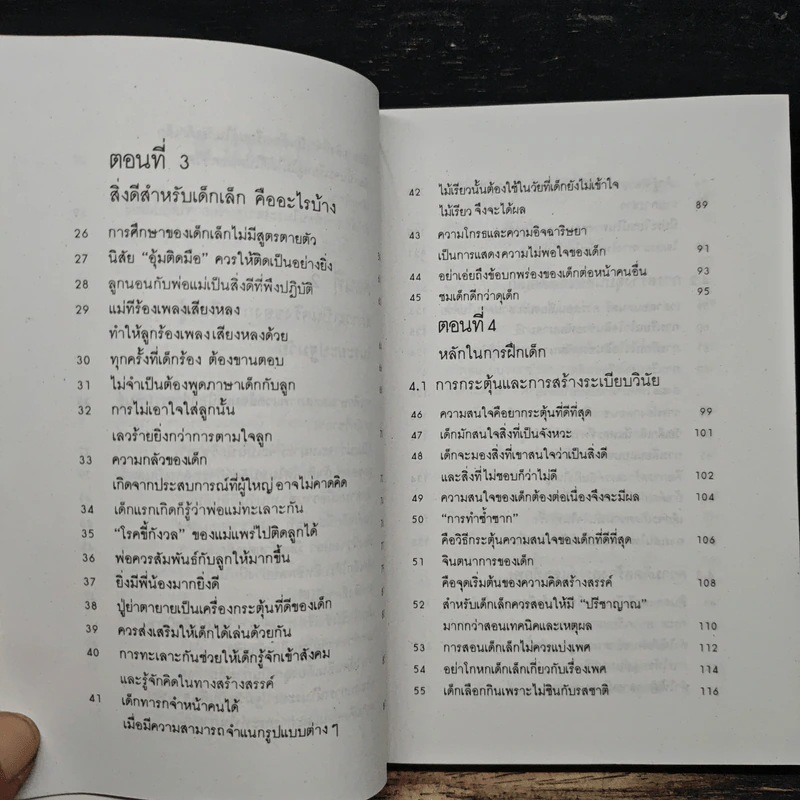 ตอนที่ 3
สิ่งดีสำหรับเด็กเล็ก คืออะไรบ้าง
26 การศึกษาของเด็กเล็กไม่มีสูตรตายตัว
27 นิสัย “อุ้มติดมือ” ควรให้ติดเป็นอย่างยิ่ง
28 ลูกนอนกับพ่อแม่เป็นสิ่งดีที่พึงปฏิบัติ
29 แม่ที่ร้องเพลงเสียงหลง
ทำให้ลูกร้องเพลงเสียงหลงด้วย
30 ทุกครั้งที่เด็กร้อง ต้องขานตอบ
31 ไม่จำเป็นต้องพูดภาษาเด็กกับลูก
32 การไม่เอาใจใส่ลูกนั้น
เลวร้ายยิ่งกว่าการตามใจลูก
33 ความกลัวของเด็ก
เกิดจากประสบการณ์ที่ผู้ใหญ่อาจไม่คาดคิด
34 เด็กแรกเกิดก็รู้ว่าพ่อแม่ทะเลาะกัน
35 “โรคขี้กังวล” ของแม่แพร่ไปติดลูกได้
36 พ่อควรสัมพันธ์กับลูกให้มากขึ้น
37 ยิ่งมีพี่น้องมากยิ่งดี
38 ปู่ย่าตายายเป็นเครื่องกระตุ้นที่ดีของเด็ก
39 ควรส่งเสริมให้เด็กได้เล่นด้วยกัน
40 การทะเลาะกันช่วยให้เด็กรู้จักเข้าสังคม
และรู้จักคิดในทางสร้างสรรค์
41 เด็กทารกจำหน้าคนได้
เมื่อมีความสามารถจำแนกรูปแบบต่าง ๆ
42 ไม้เรียวนั้นต้องใช้ในวัยที่เด็กยังไม่เข้าใจ
ไม้เรียว จึงจะได้ผล 89
43 ความโกรธและความอิจฉาริษยา
เป็นการแสดงความไม่พอใจของเด็ก 91
44 อย่าเอ่ยถึงข้อบกพร่องของเด็กต่อหน้าคนอื่น 93
45 ชมเด็กดีกว่าดุเด็ก 95
ตอนที่ 4
หลักในการฝึกเด็ก
4.1 การกระตุ้นและการสร้างระเบียบวินัย
46 ความสนใจคือยากระตุ้นที่ดีที่สุด 99
47 เด็กมักสนใจสิ่งที่เป็นจังหวะ 101
48 เด็กจะมองสิ่งที่เขาสนใจว่าเป็นสิ่งดี
และสิ่งที่ไม่ชอบก็ว่าไม่ดี 102
49 ความสนใจของเด็กต้องต่อเนื่องจึงจะมีผล 104
50 “การทำซ้ำซาก”
คือวิธีกระตุ้นความสนใจของเด็กที่ดีที่สุด 106
51 จินตนาการของเด็ก
คือจุดเริ่มต้นของความคิดสร้างสรรค์ 108
52 สำหรับเด็กเล็กควรสอนให้มี “ปรีชาญาณ”
มากกว่าสอนเทคนิคและเหตุผล 110
53 การสอนเด็กเล็กไม่ควรแบ่งเพศ 112
54 อย่าโกหกเด็กเล็กเกี่ยวกับเรื่องเพศ 114
55 เด็กเลือกกินเพราะไม่ชินกับรสชาติ 116